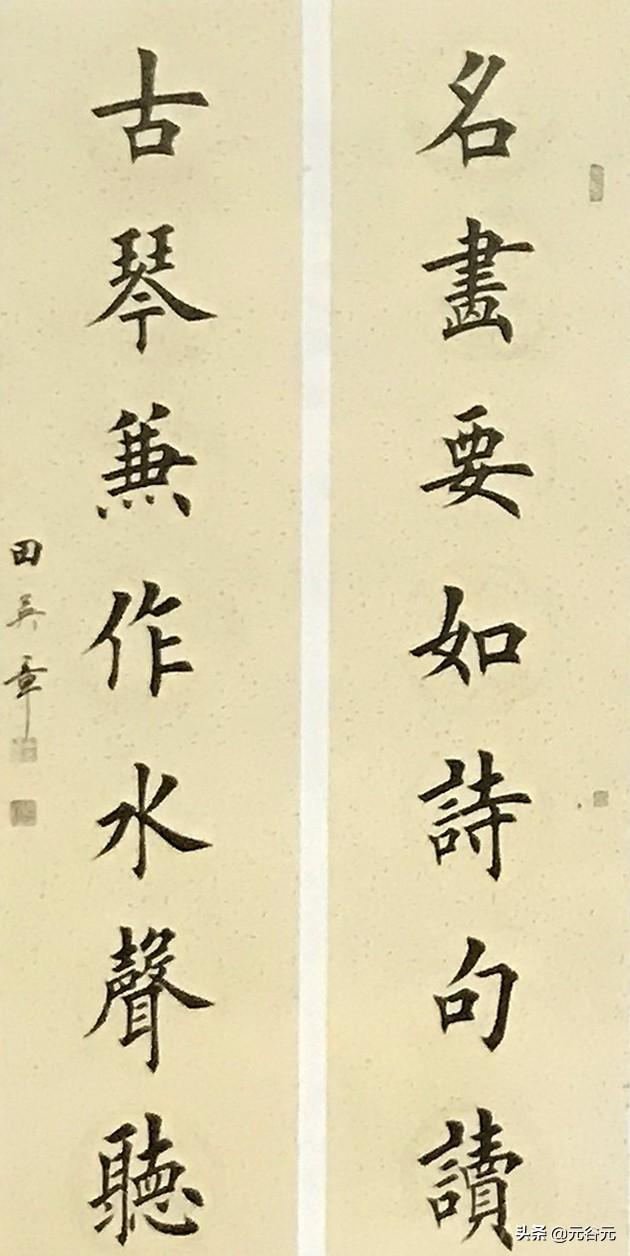 名畫要如詩句讀
古琴兼作水聲聽
田英章
头条 @元谷元